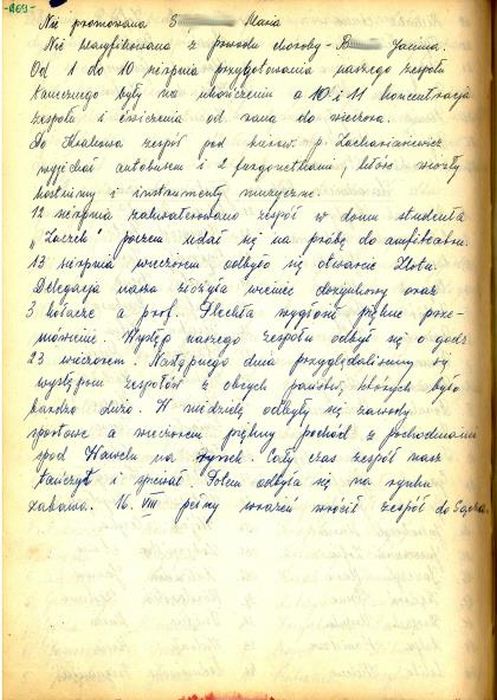 -169-
Nie promowana S Maria
Nie klasyfikowana z powodu choroby - B Janina.
Od 1 do 10 sierpnia przygotowania naszego zespołu
tanecznego były na ukończeniu a 10 i 11 koncentracja
zespołu i ćwiczenia od rana do wieczora.
Do Krakowa zespół pod kierow. p. Zachariasiewicz
wyjechał autobusem i 2 furgonetkami, które wiozły
kostiumy i instrumenty muzyczne.
12 sierpnia zakwaterowano zespół w domu studenta
„Żaczek" poczem udał się na próbę do amfiteatru.
13 sierpnia wieczorem odbyło się otwarcie Zlotu.
Delegacja nasza złożyła wieniec dożynkowy oraz
3 kołacze a prof. Plechta wygłosił piękne prze-
mówienie. Występ naszego zespołu odbył się o godz
23 wieczorem. Następnego dnia przyglądaliśmy się
występom zespołów z obcych państw, których było
bardzo dużo. W niedzielę odbyły się zawody
sportowe a wieczorem piękny pochód z pochodniami
spod Wawelu na rynek. Cały czas zespół nasz
tańczył i śpiewał. Potem odbyła się na rynku
zabawa. 16. VIII pełny wrażeń wrócił zespół do